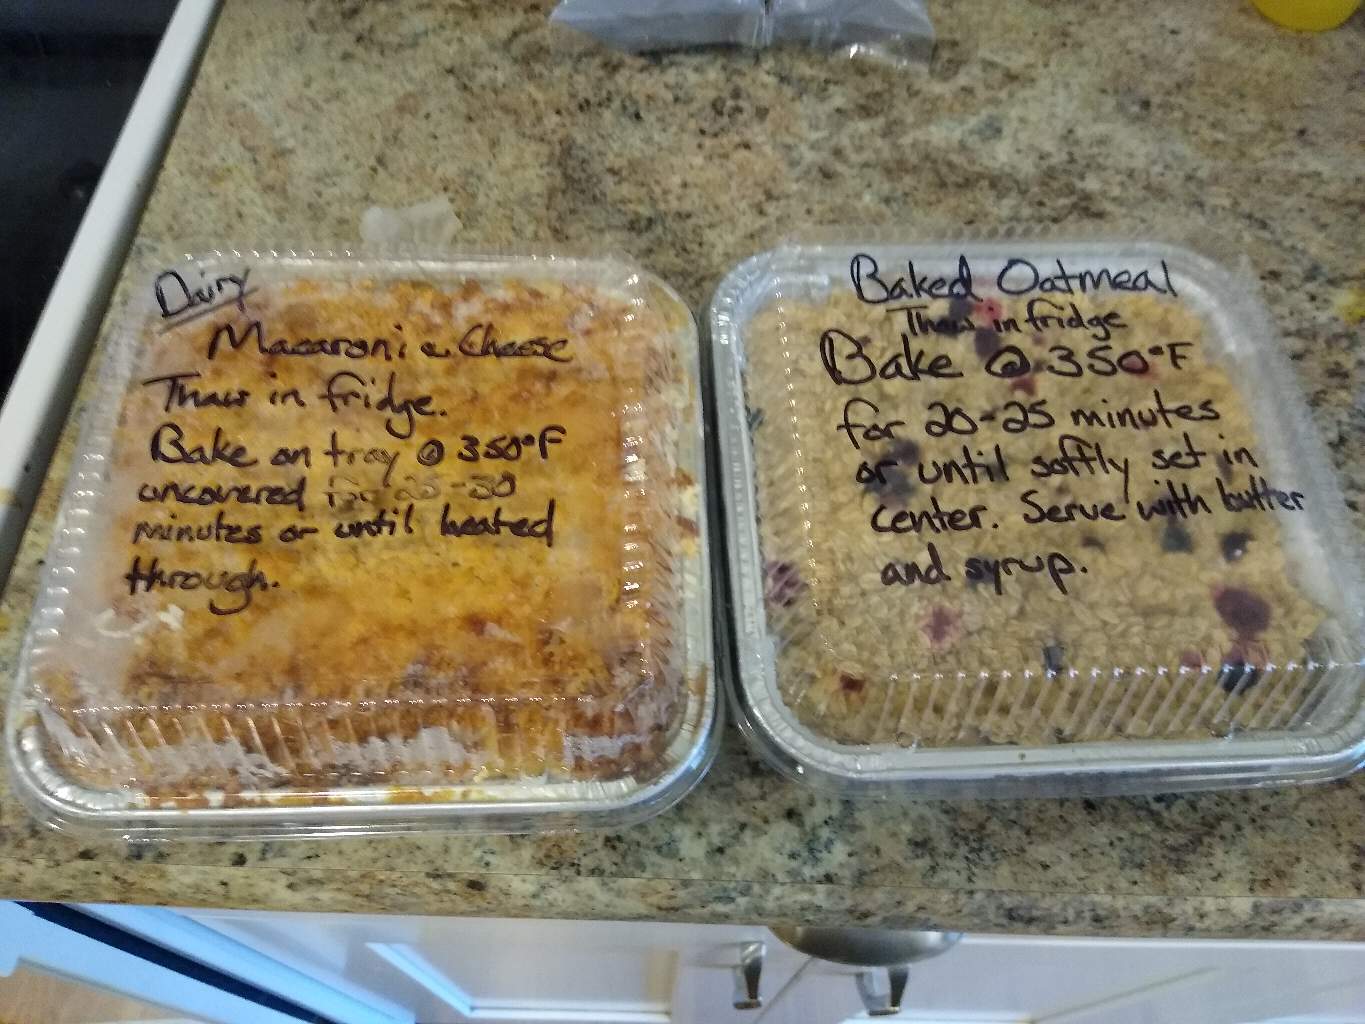 Dairy
Macaroni & Cheese
Thaw in fridge.
Bake on tray @ 350°F
uncovered for 25-30
minutes or until heated
through.
Baked Oatmeal
Thaw in fridge
Bake @ 350°F
for 20-25 minutes
or until softly set in
center. Serve with butter
and syrup.